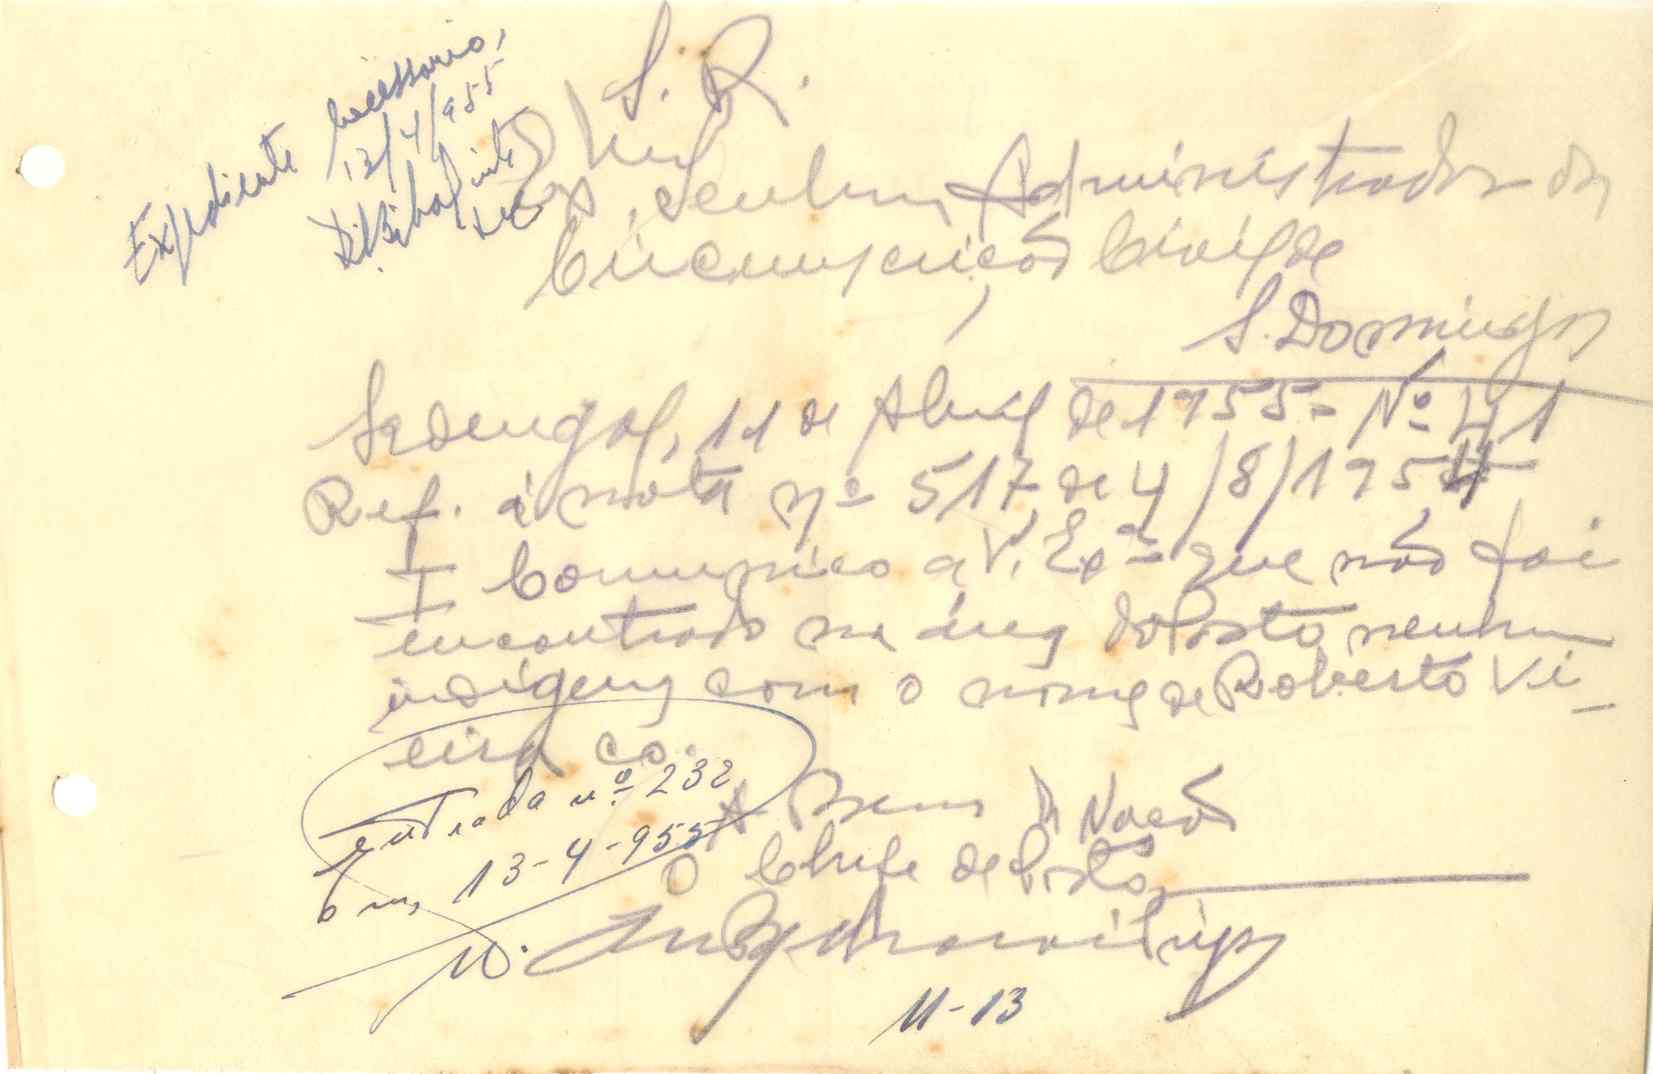 Expediente necessario,
13/4/955
S. R.
Exmº Senhor Administrador da
Circunscrição Civil de
S. Domingos
Sedengal, 11 de Abril de 1955- Nº 41
Ref. á nota nº 517 de 4/8/1954
I Comunico a V. Exª que não foi
encontrado na área do Posto nenhum
indígena com o nome de Roberto Vi-
eira Có.
A Bem da Nação
O Chefe de Posto,
entrada nº 232
em, 13-4-955
11-13